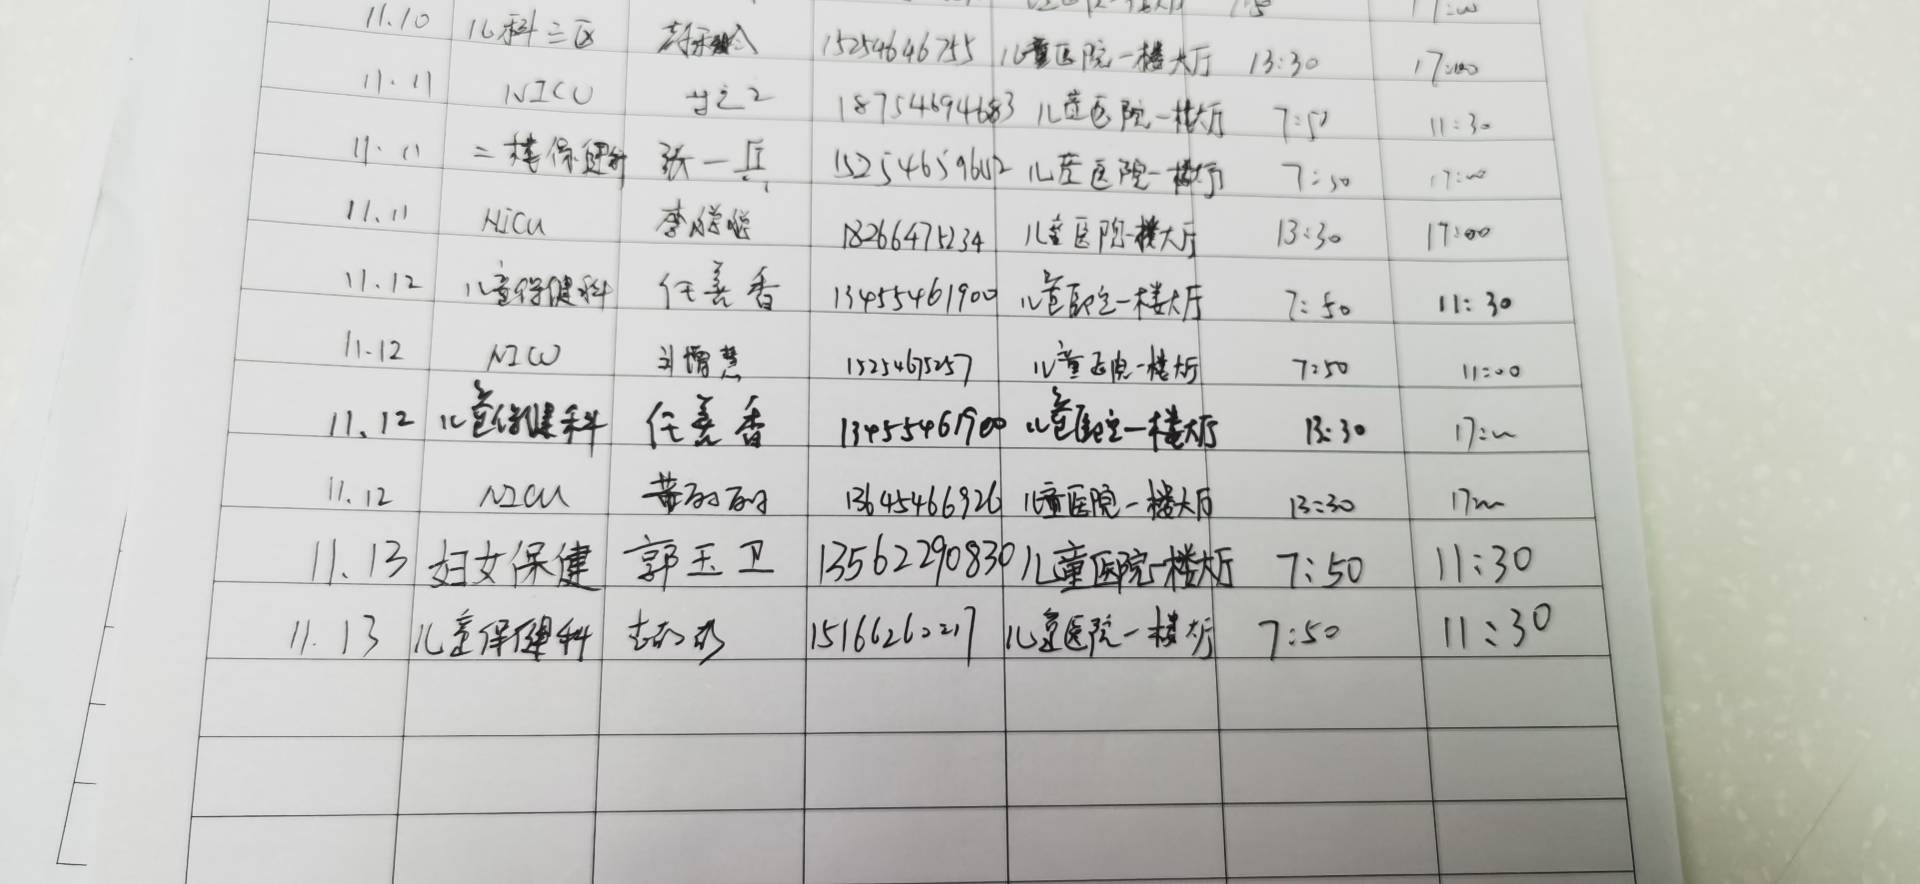 11.10 儿科三区 15254646755 儿童医院一楼大厅 13:30 17:00
11.11 NICU 18754694683 儿童医院一楼大厅 7:50 11:30
11.11 二楼保健科 张一兵 15254659602 儿童医院一楼大厅 7:50 17:00
11.11 NiCU 李 18266475234 儿童医院一楼大厅 13:30 17:00
11.12 儿童保健科 任善香 13455461900 儿童医院一楼大厅 7:50 11:30
11.12 NICU 刘增慧 15254675257 儿童医院一楼大厅 7:50 11:00
11.12 儿童保健科 任善香 13455461900 儿童医院一楼大厅 13:30 17:00
11.12 NICU 黄丽丽 13645466926 儿童医院一楼大厅 13:30 17:00
11.13 妇女保健 郭玉卫 13562290830 儿童医院一楼大厅 7:50 11:30
11.13 儿童保健科 15166262217 儿童医院一楼大厅 7:50 11:30